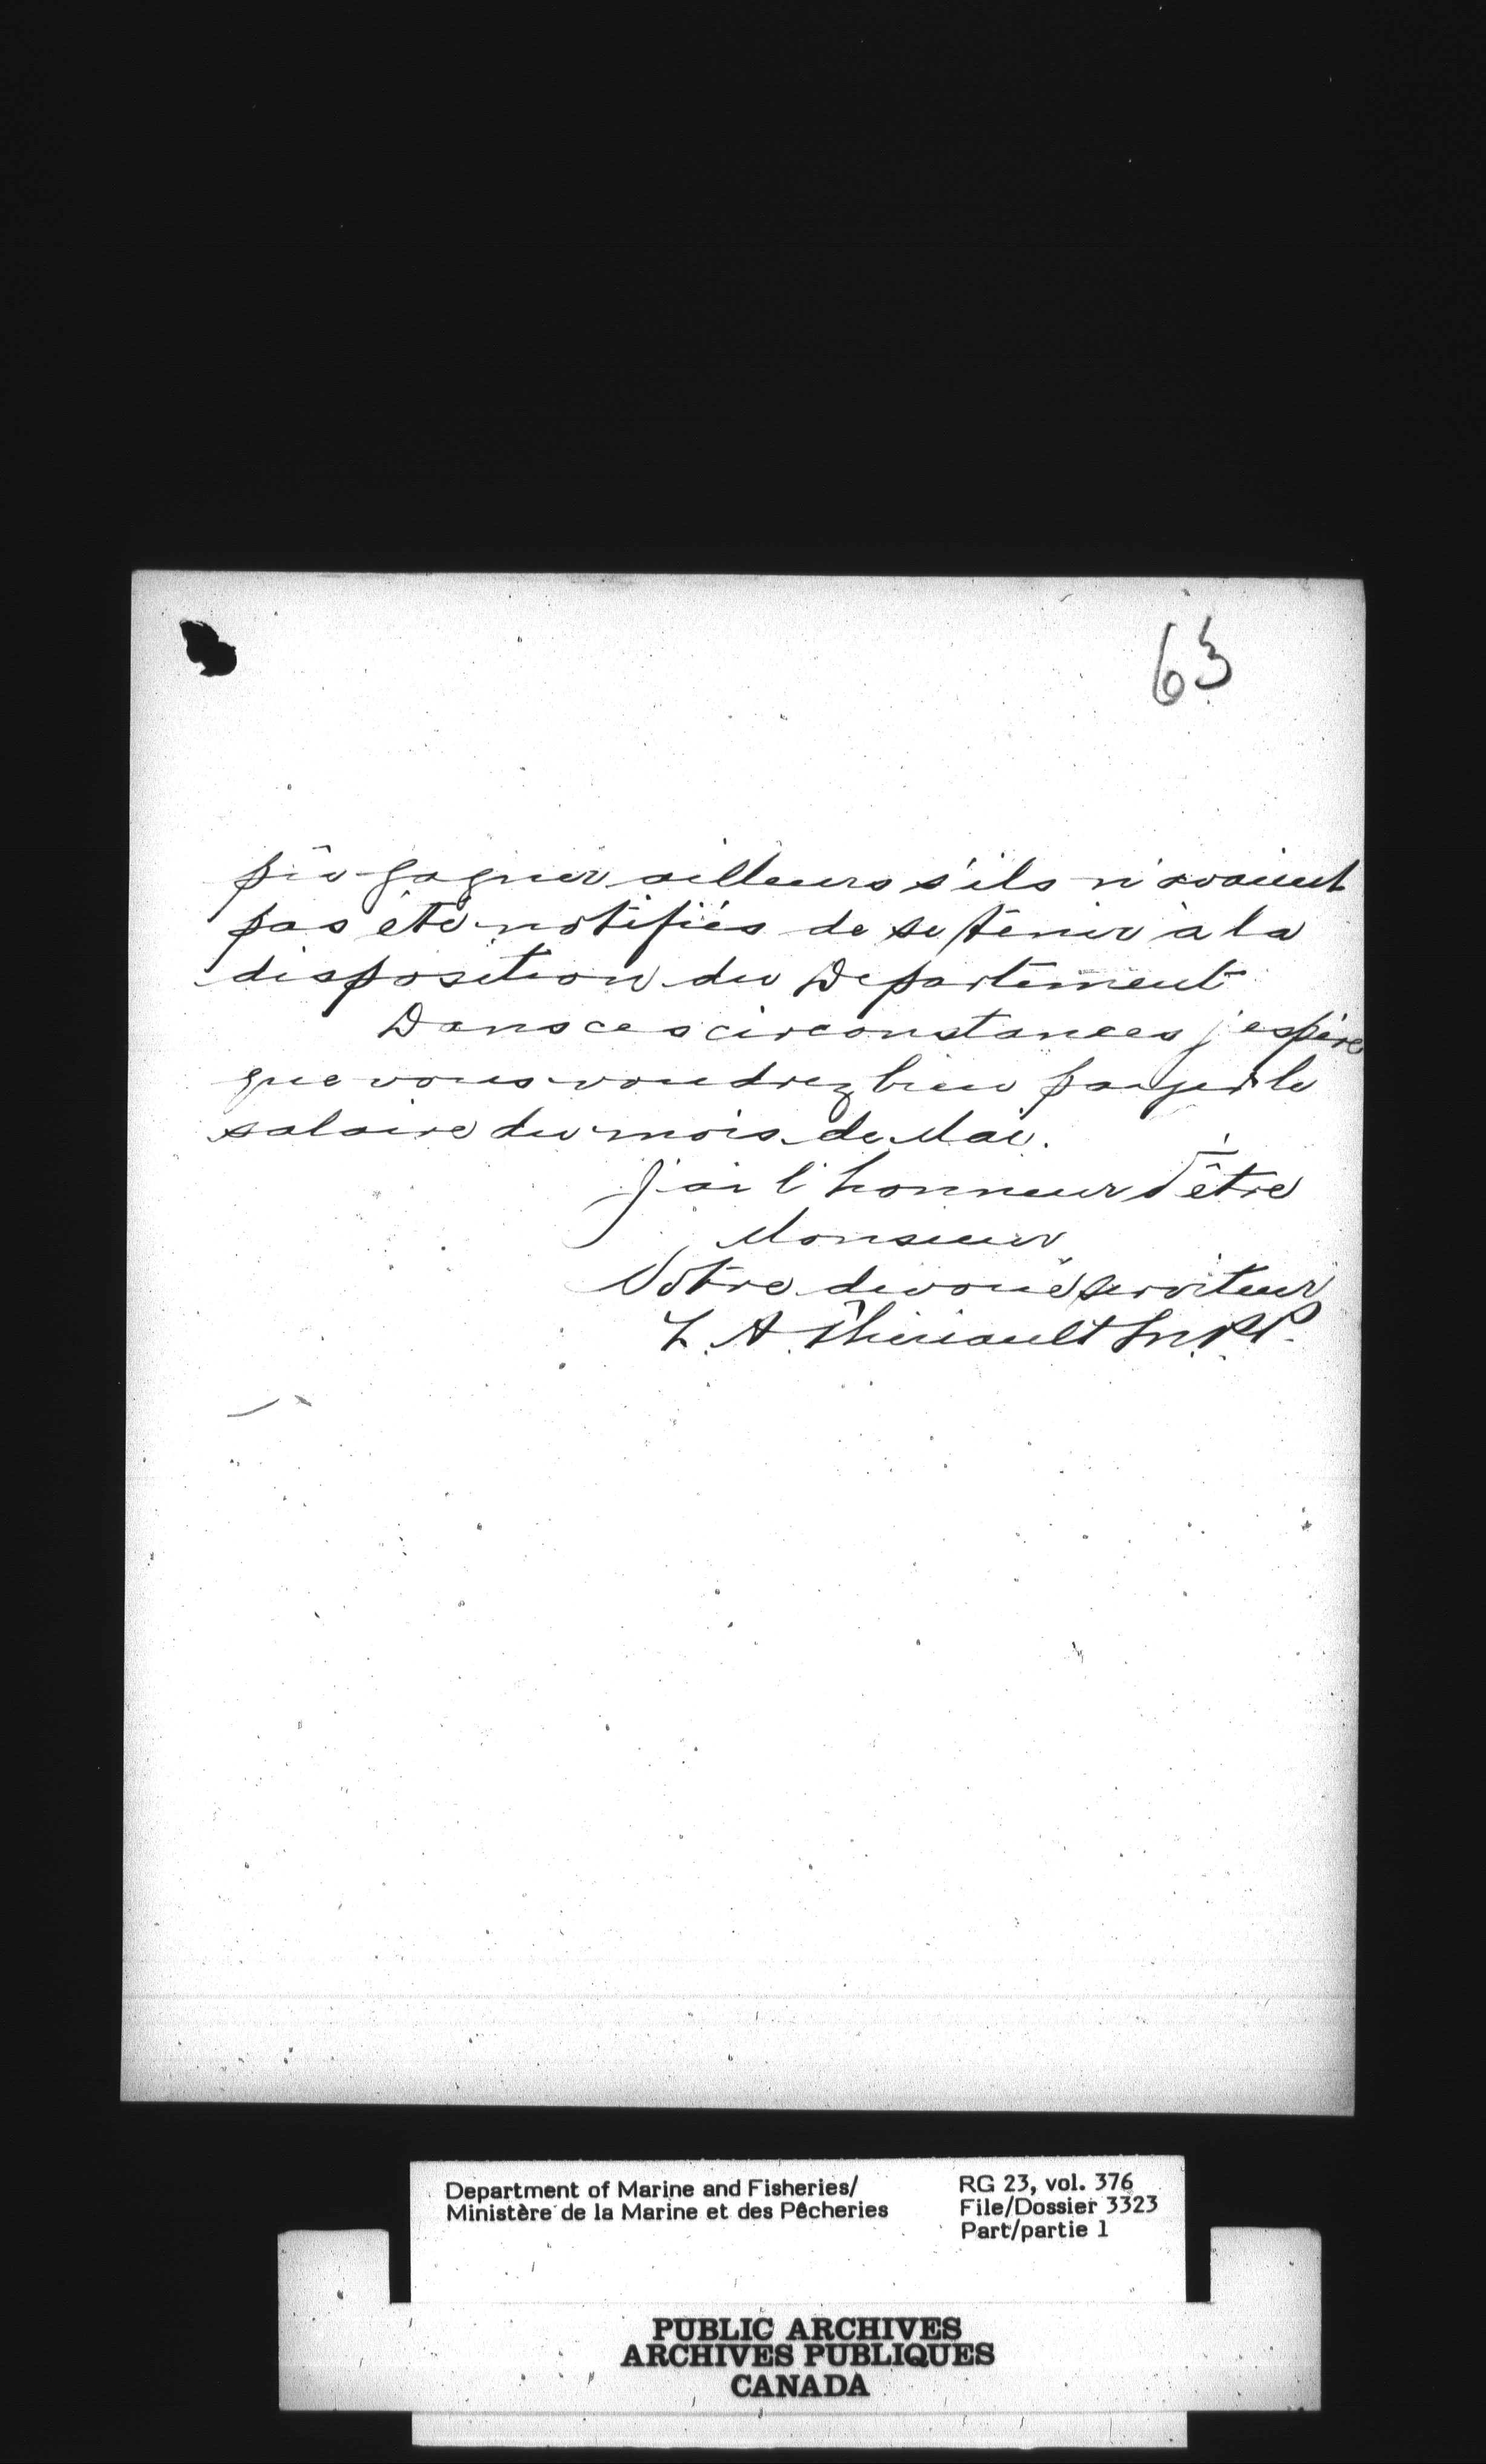 63
pû gagner ailleurs s'ils n'avaient
pas été notifiés de se tenir à la
disposition du Departement
Dans ces circonstances j'espère
que vous voudrez bien payer le
salaire du mois de Mai.
J'ai l'honneur d'être
Monsieur
Votre devoué serviteur
L. A. Theriault
Department of Marine and Fisheries/
Ministère de la Marine et des Pêcheries
RG 23, vol. 376
File/Dossier 3323
Part/partie 1
PUBLIC ARCHIVES
ARCHIVES PUBLIQUES
CANADA